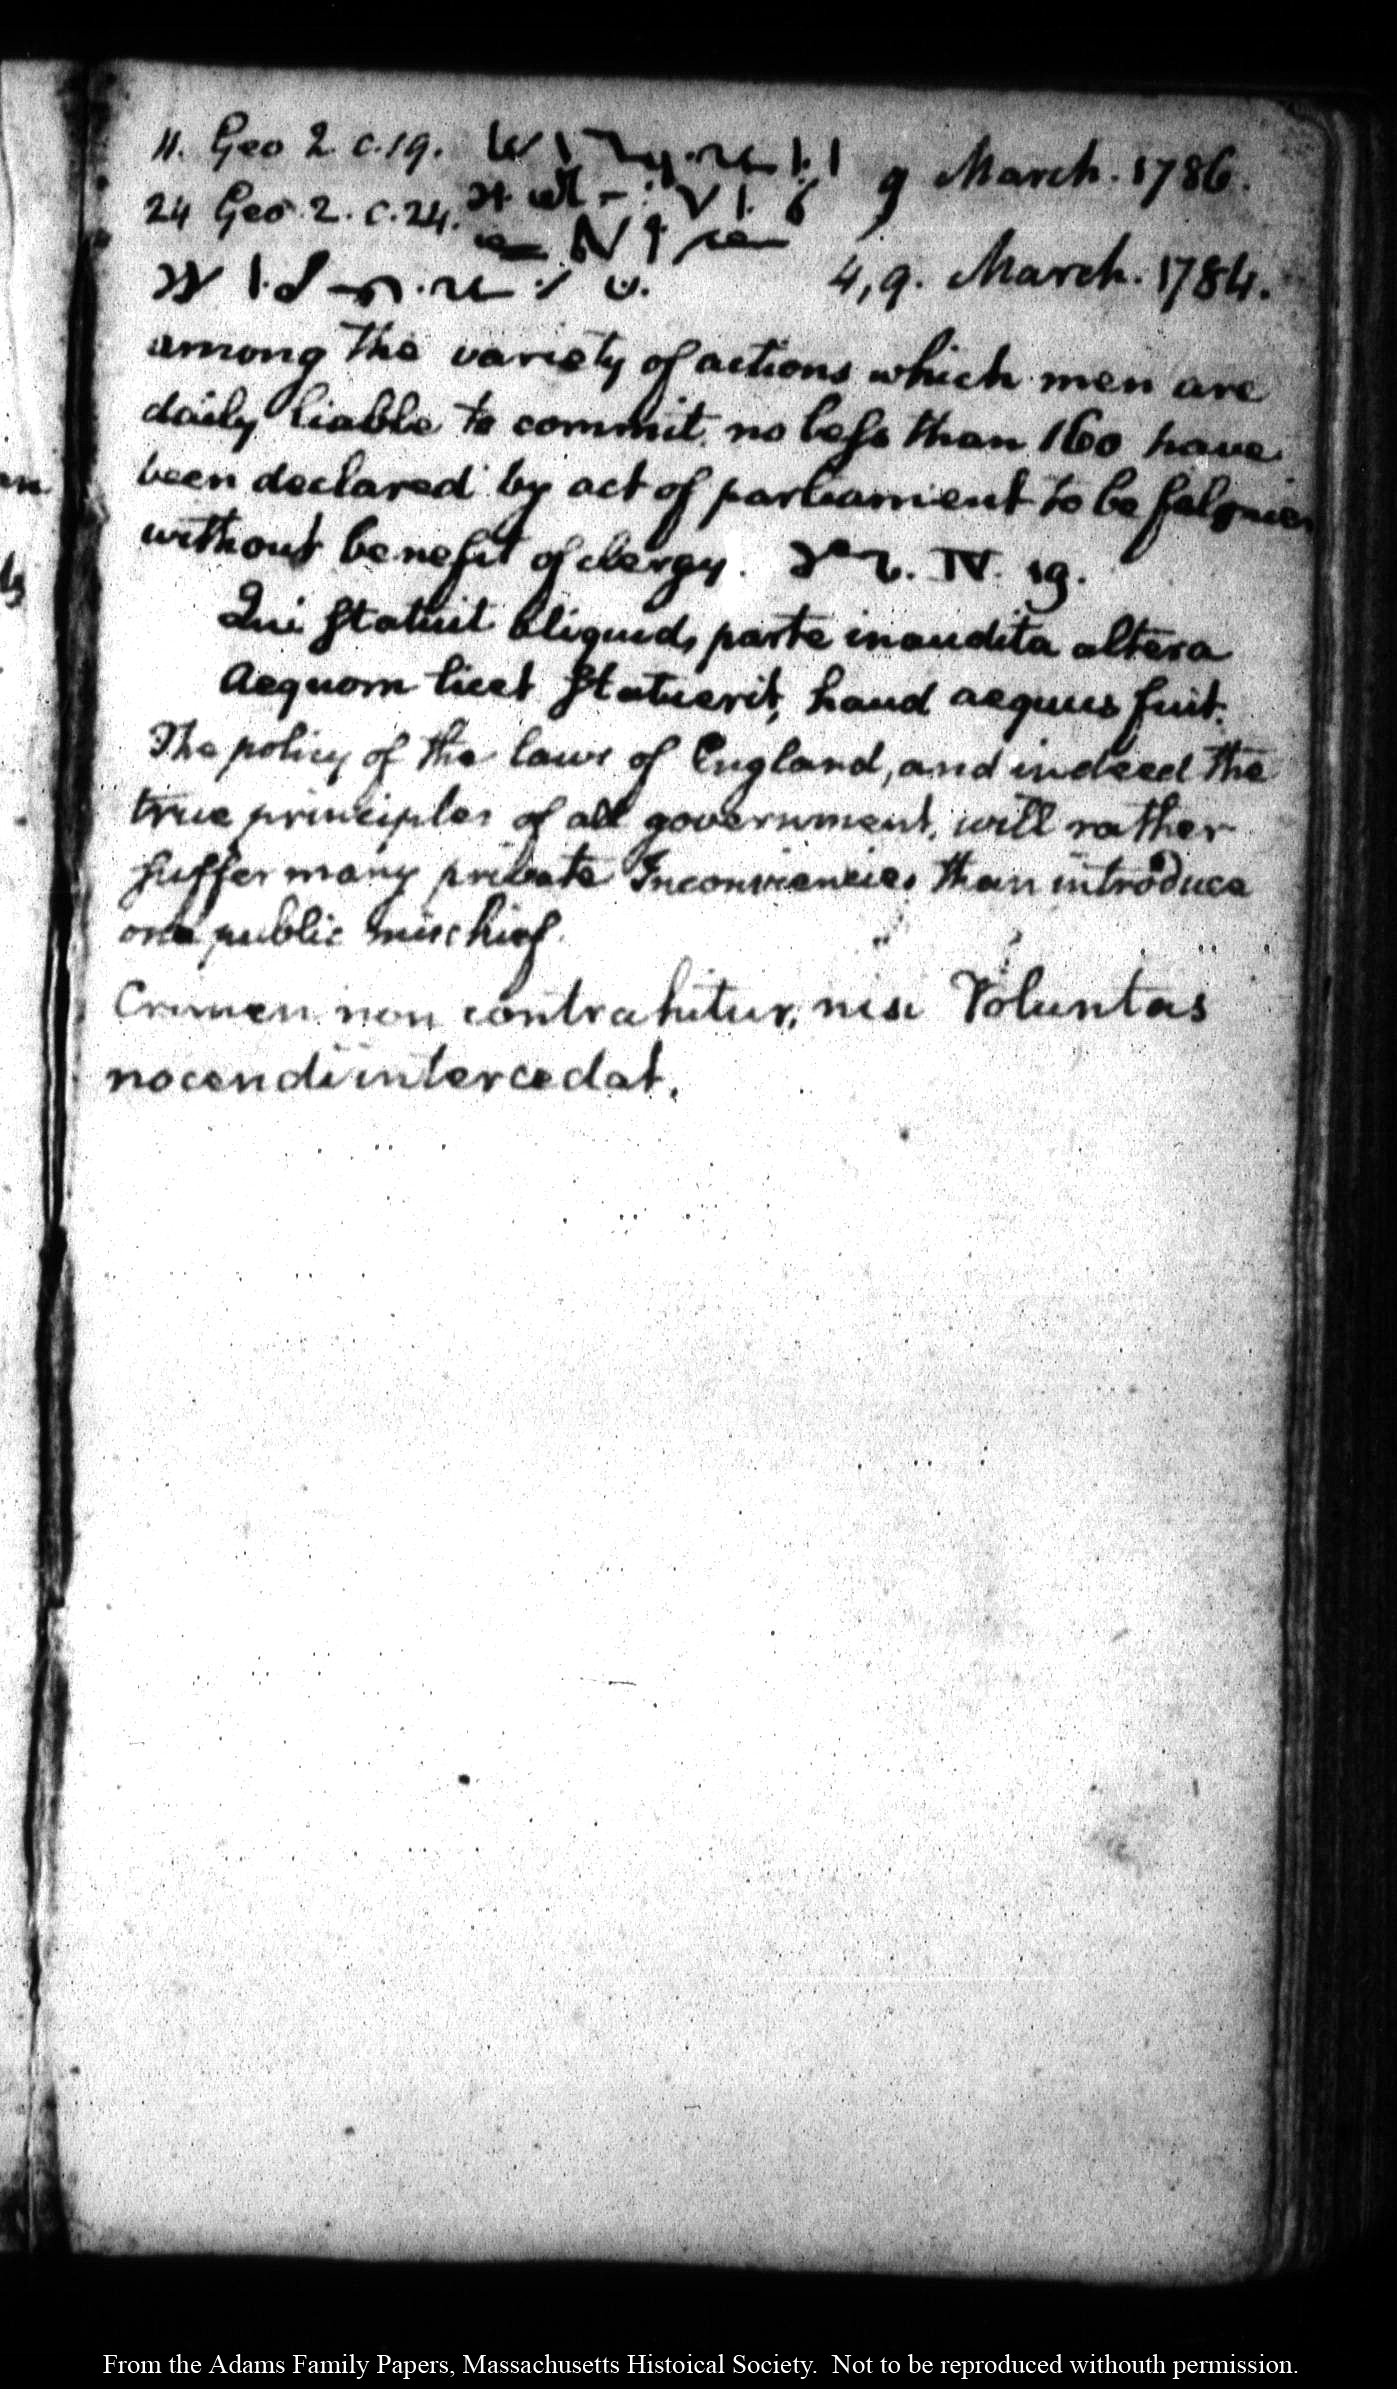 11. Geo 2. c.19. 9 March. 1786.
24 Geo. 2. c.24.
4, 9. March. 1784.
among the variety of actions which men are
daily liable to commit. no less than 160 have
been declared by act of parliament to be felonies
without benefit of clergy. IV. 19.
Qui statuit aliquid, parte inaudita altera
Aequom licet statuerit, haud aequus fuit.
The policy of the laws of England, and indeed the
true principles of all government, will rather
suffer many private Inconveniencies than introduce
one public mischief.
Crimen non contrahitur, nisi Voluntas
nocendi intercedat.
From the Adams Family Papers, Massachusetts Histoical Society. Not to be reproduced withouth permission.